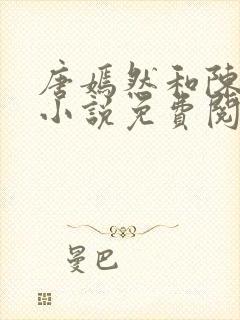 唐嫣然和陳
小說免費閱
曼巴